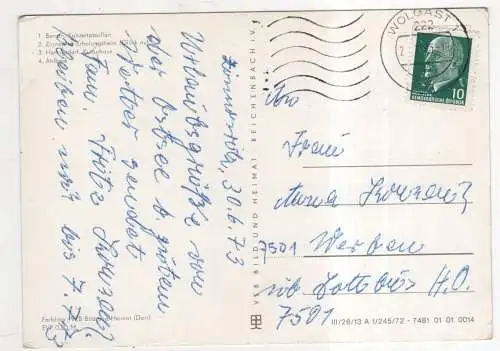 1 Bansin, Konzertpavillon
2 Zinnowitz, Erholungsheim
3 Heringsdorf, Kulturhaus
4 Ahlbeck
Zinnowitz, 30.6.73
Urlaubsgrüße von
der Ostsee b. gutem
Wetter sendet
Fam. Fritz
bleiben noch bis 7.7.73
Farbfoto: VEB Bild und Heimat
EVP 0,20 M
VEB BILD UND HEIMAT REICHENBACH i. V.
WOLGAST 1
222
10
DEMOKRATISCHE REPUBLIK
An
Frau
Anna
7501 Werben
üb. Cottbus H.O.
7501
III/26/13 A 1/245/72 - 7481 01 01 0014